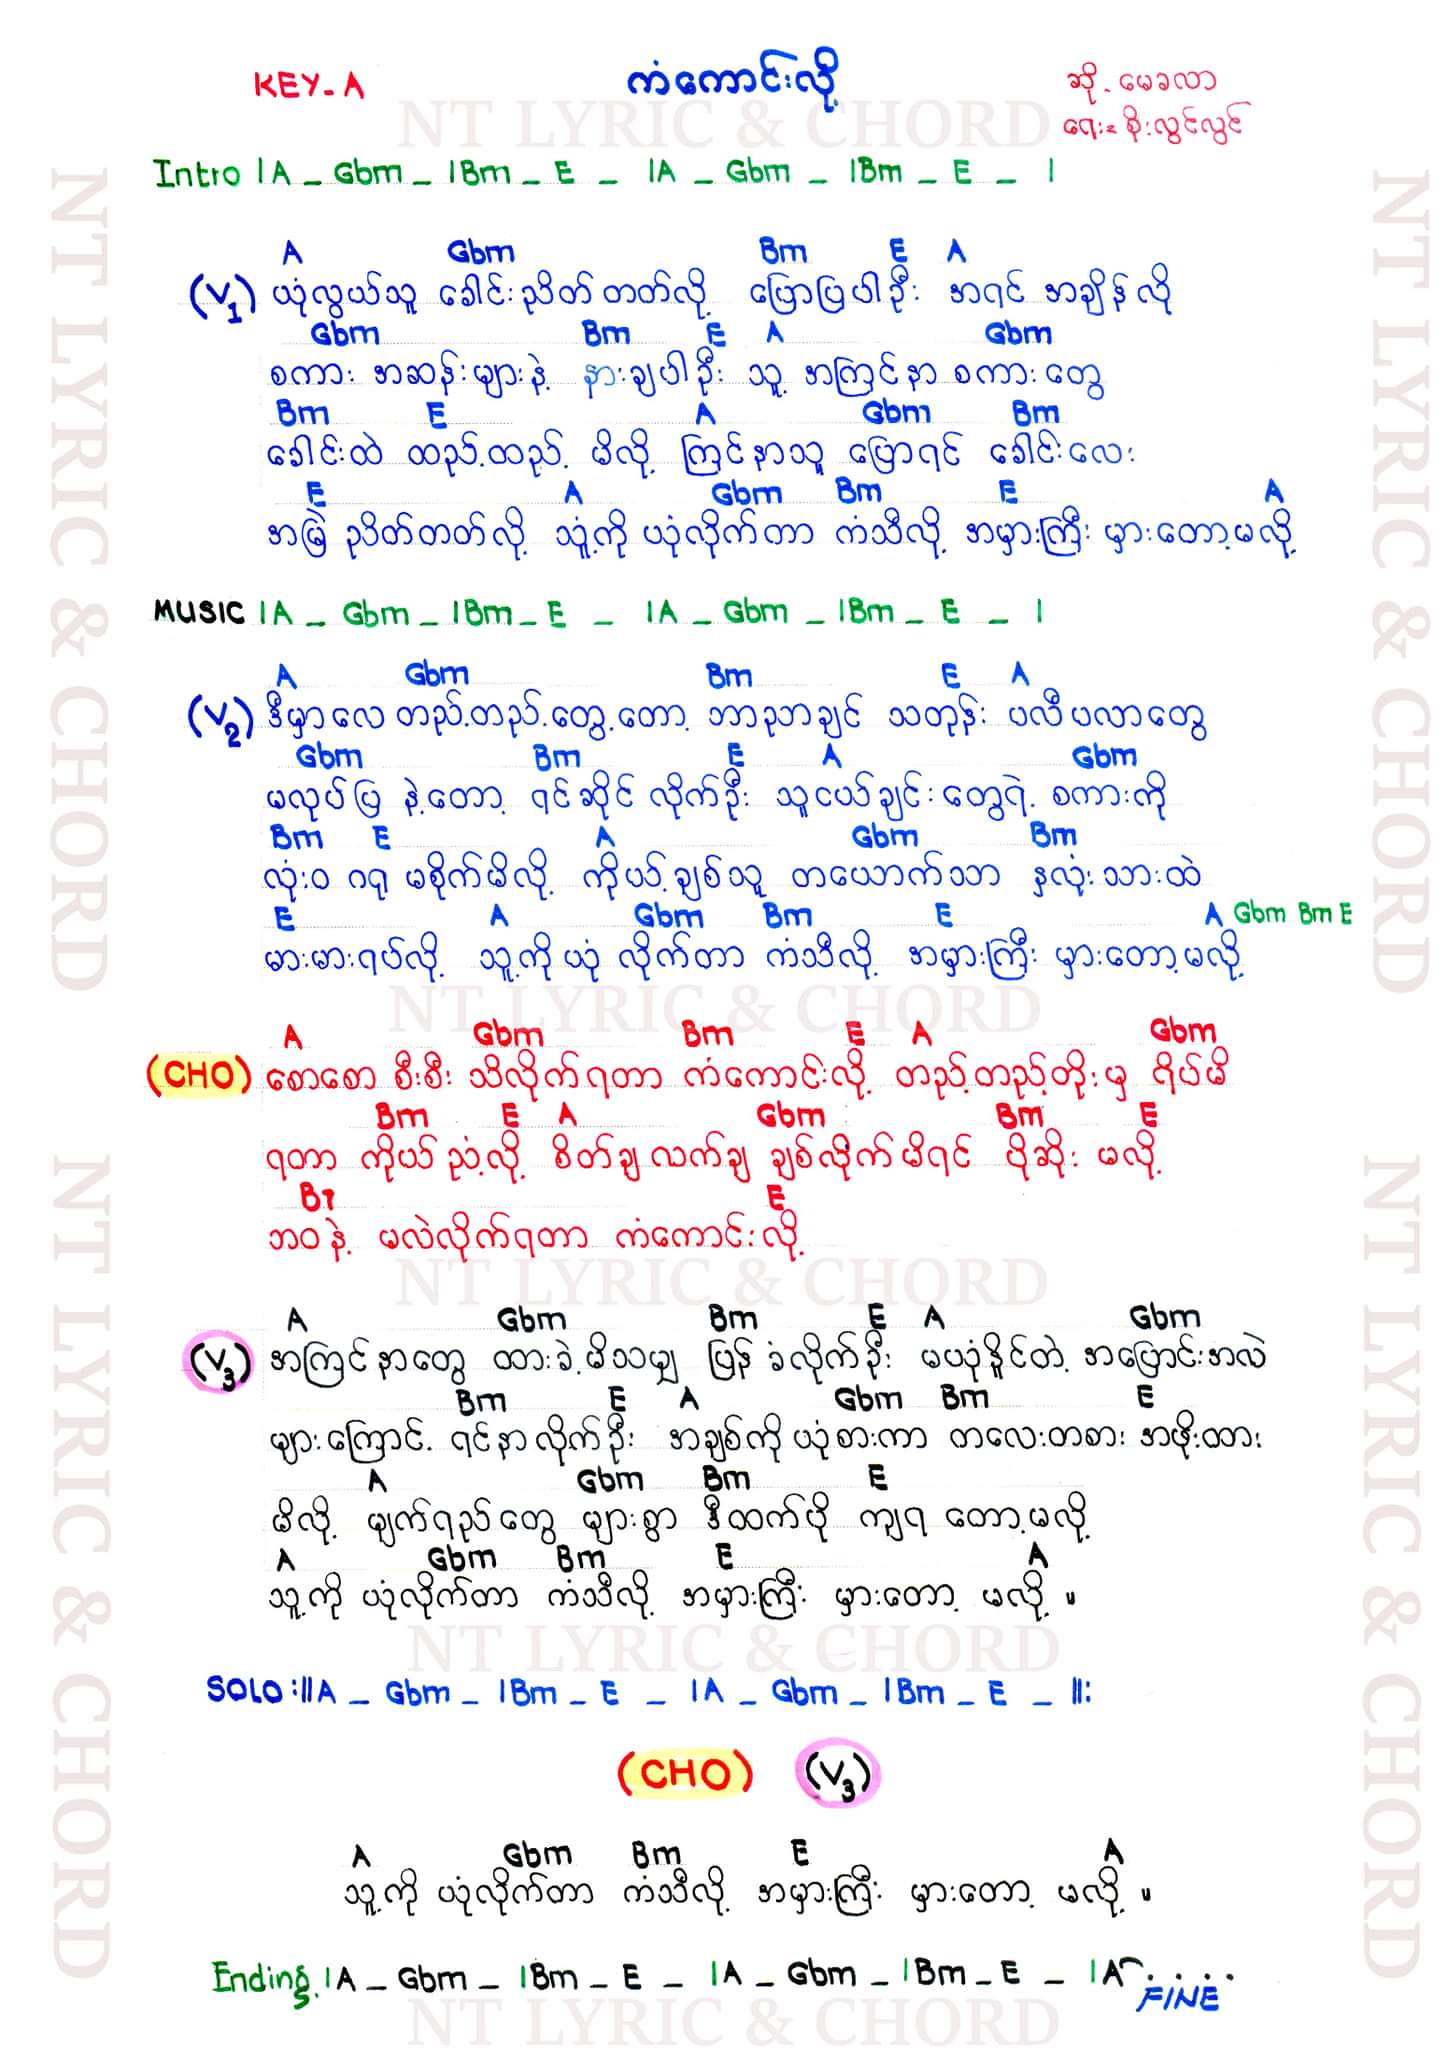 KEY-A
ကံကောင်းလို့
ဆို - မေခလာ
ရေး = စိုးလွင်လွင်
NT LYRIC & CHORD
Intro | A _ Gbm _ | Bm _ E _ | A _ Gbm _ | Bm _ E _ |
A Gbm Bm E A
(V1) ယုံလွယ်သူ ခေါင်းညိတ်တတ်လို့ ပြောပြပါဦး အရင် အချိန်လို
Gbm Bm E A Gbm
စကား အဆန်းများနဲ့ နားချပါဦး သူ့ အကြင်နာ စကားတွေ
Bm E A Gbm Bm
ခေါင်းထဲ ထည့်ထည့် မိလို့ ကြင်နာသူ ပြောရင် ခေါင်းလေး
E A Gbm Bm E A
အမြဲ ညိတ်တတ်လို့ သူ့ကို ယုံလိုက်တာ ကံသီလို့ အမှားကြီး မှားတော့မလို့
MUSIC | A _ Gbm _ | Bm _ E _ | A _ Gbm _ | Bm _ E _ |
A Gbm Bm E A
(V2) ဒီမှာလေ တည့်တည့်တွေ့တော့ ဘာညာချင် သတုန်း ပလီပလာတွေ
Gbm Bm E A Gbm
မလုပ်ပြ နဲ့တော့ ရင်ဆိုင် လိုက်ဦး သူငယ်ချင်းတွေရဲ့ စကားကို
Bm E A Gbm Bm
လုံးဝ ဂရု မစိုက်မိလို့ ကိုယ့်ချစ်သူ တယောက်သာ နှလုံးသားထဲ
E A Gbm Bm E A Gbm Bm E
မားမားရပ်လို့ သူ့ကို ယုံ လိုက်တာ ကံသီလို့ အမှားကြီး မှားတော့မလို့
NT LYRIC & CHORD
A Gbm Bm E A Gbm
(CHO) စောစော စီးစီး သိလိုက်ရတာ ကံကောင်းလို့ တည့်တည့်တိုးမှ ရိပ်မိ
Bm E A Gbm Bm E
ရတာ ကိုယ်ညံ့လို့ စိတ်ချ လက်ချ ချစ်လိုက်မိရင် ပိုဆိုး မလို့
B7 E
ဘဝနဲ့ မလဲလိုက်ရတာ ကံကောင်းလို့
NT LYRIC & CHORD
A Gbm Bm E A Gbm
(V3) အကြင်နာတွေ ထားခဲ့မိသမျှ ပြန် ခံလိုက်ဦး မယုံနိူင်တဲ့ အပြောင်းအလဲ
Bm E A Gbm Bm E
များကြောင့် ရင်နာလိုက်ဦး အချစ်ကို ယုံစားကာ တလေးတစား အဖိုးထား
A Gbm Bm E
မိလို့ မျက်ရည်တွေ များစွာ ဒီထက်ပို ကျရ တော့မလို့
A Gbm Bm E A
သူ့ကို ယုံလိုက်တာ ကံသီလို့ အမှားကြီး မှားတော့ မလို့ ။
NT LYRIC & CHORD
SOLO :|| A _ Gbm _ | Bm _ E _ | A _ Gbm _ | Bm _ E _ ||:
(CHO) (V3)
A Gbm Bm E A
သူ့ကို ယုံလိုက်တာ ကံသီလို့ အမှားကြီး မှားတော့ မလို့ ။
Ending | A _ Gbm _ | Bm _ E _ | A _ Gbm _ | Bm _ E _ | A . . . .
FINE
NT LYRIC & CHORD
NT LYRIC & CHORD
NT LYRIC & CHORD
NT LYRIC & CHORD
NT LYRIC & CHORD